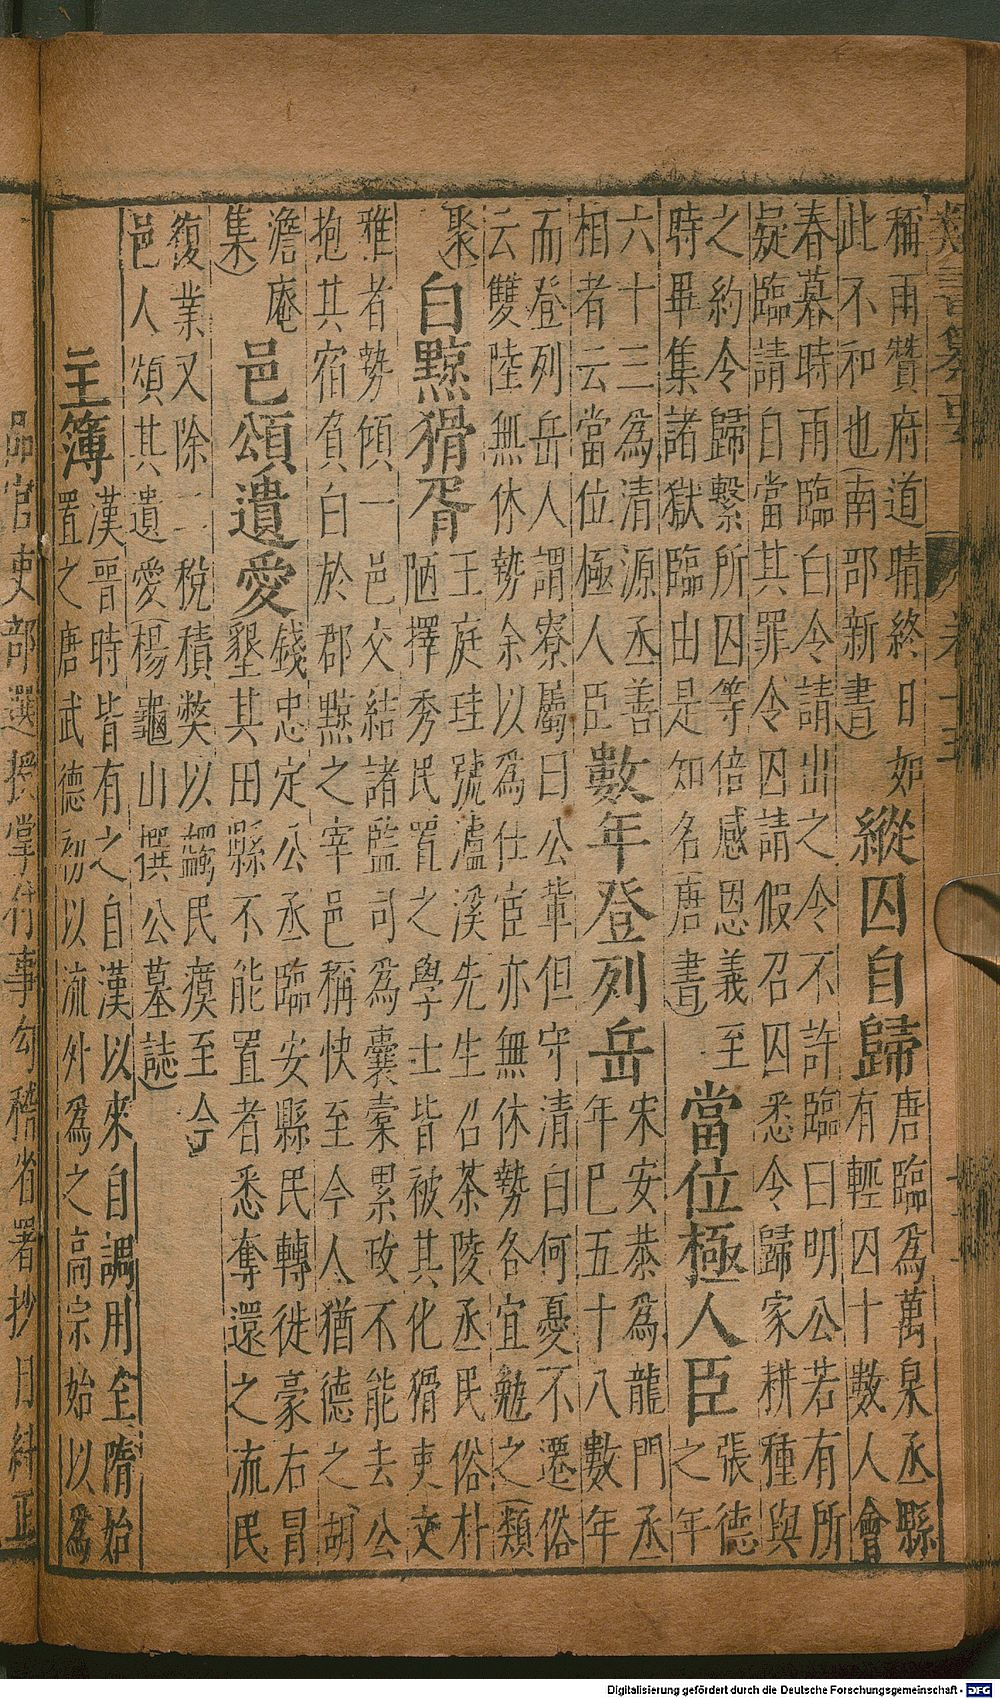 類書纂要 卷十五
稱雨贊府道晴終日如
此不和也(南部新書)
縱囚自歸
唐臨為萬泉丞縣
有輕囚十數人會
春暮時雨臨白令請出之令不許臨曰明公若有所
疑臨請自當其罪令囚請假召囚悉令歸家耕種與
之約令歸繫所囚等倍感恩義至
時畢集諸獄臨由是知名唐書)
當位極人臣
張德
之年
六十三為清源丞善
相者云當位極人臣
數年登列岳
宋安恭為龍門丞
年巳五十八數年
而登列岳人謂寮屬曰公輩但守清白何憂不遷俗
云雙陸無休勢余以為仕宦亦無休勢各宜勉之(類
聚)
白黥猾胥
王庭珪號瀘溪先生召茶陵丞民俗朴
陋擇秀民置之學士皆被其化猾吏文
雅者勢傾一邑交結諸監司為囊橐累政不能去公
抱其宿負白於郡黥之宰邑稱快至今人猶德之胡
澹庵
集)
邑頌遺愛
錢忠定公丞臨安縣民轉徙豪右冒
墾其田縣不能置者悉奪還之流民
復業又除二稅積獘以蠲民瘼至今
邑人頌其遺愛(楊龜山撰公墓誌)
主簿
漢晉時皆有之自漢以來自調用至隋始
置之唐武德初以流外為之高宗始以為
品官吏部選授掌付事勾稽省署抄目糾正
Digitalisierung gefördert durch die Deutsche Forschungsgemeinschaft - DFG